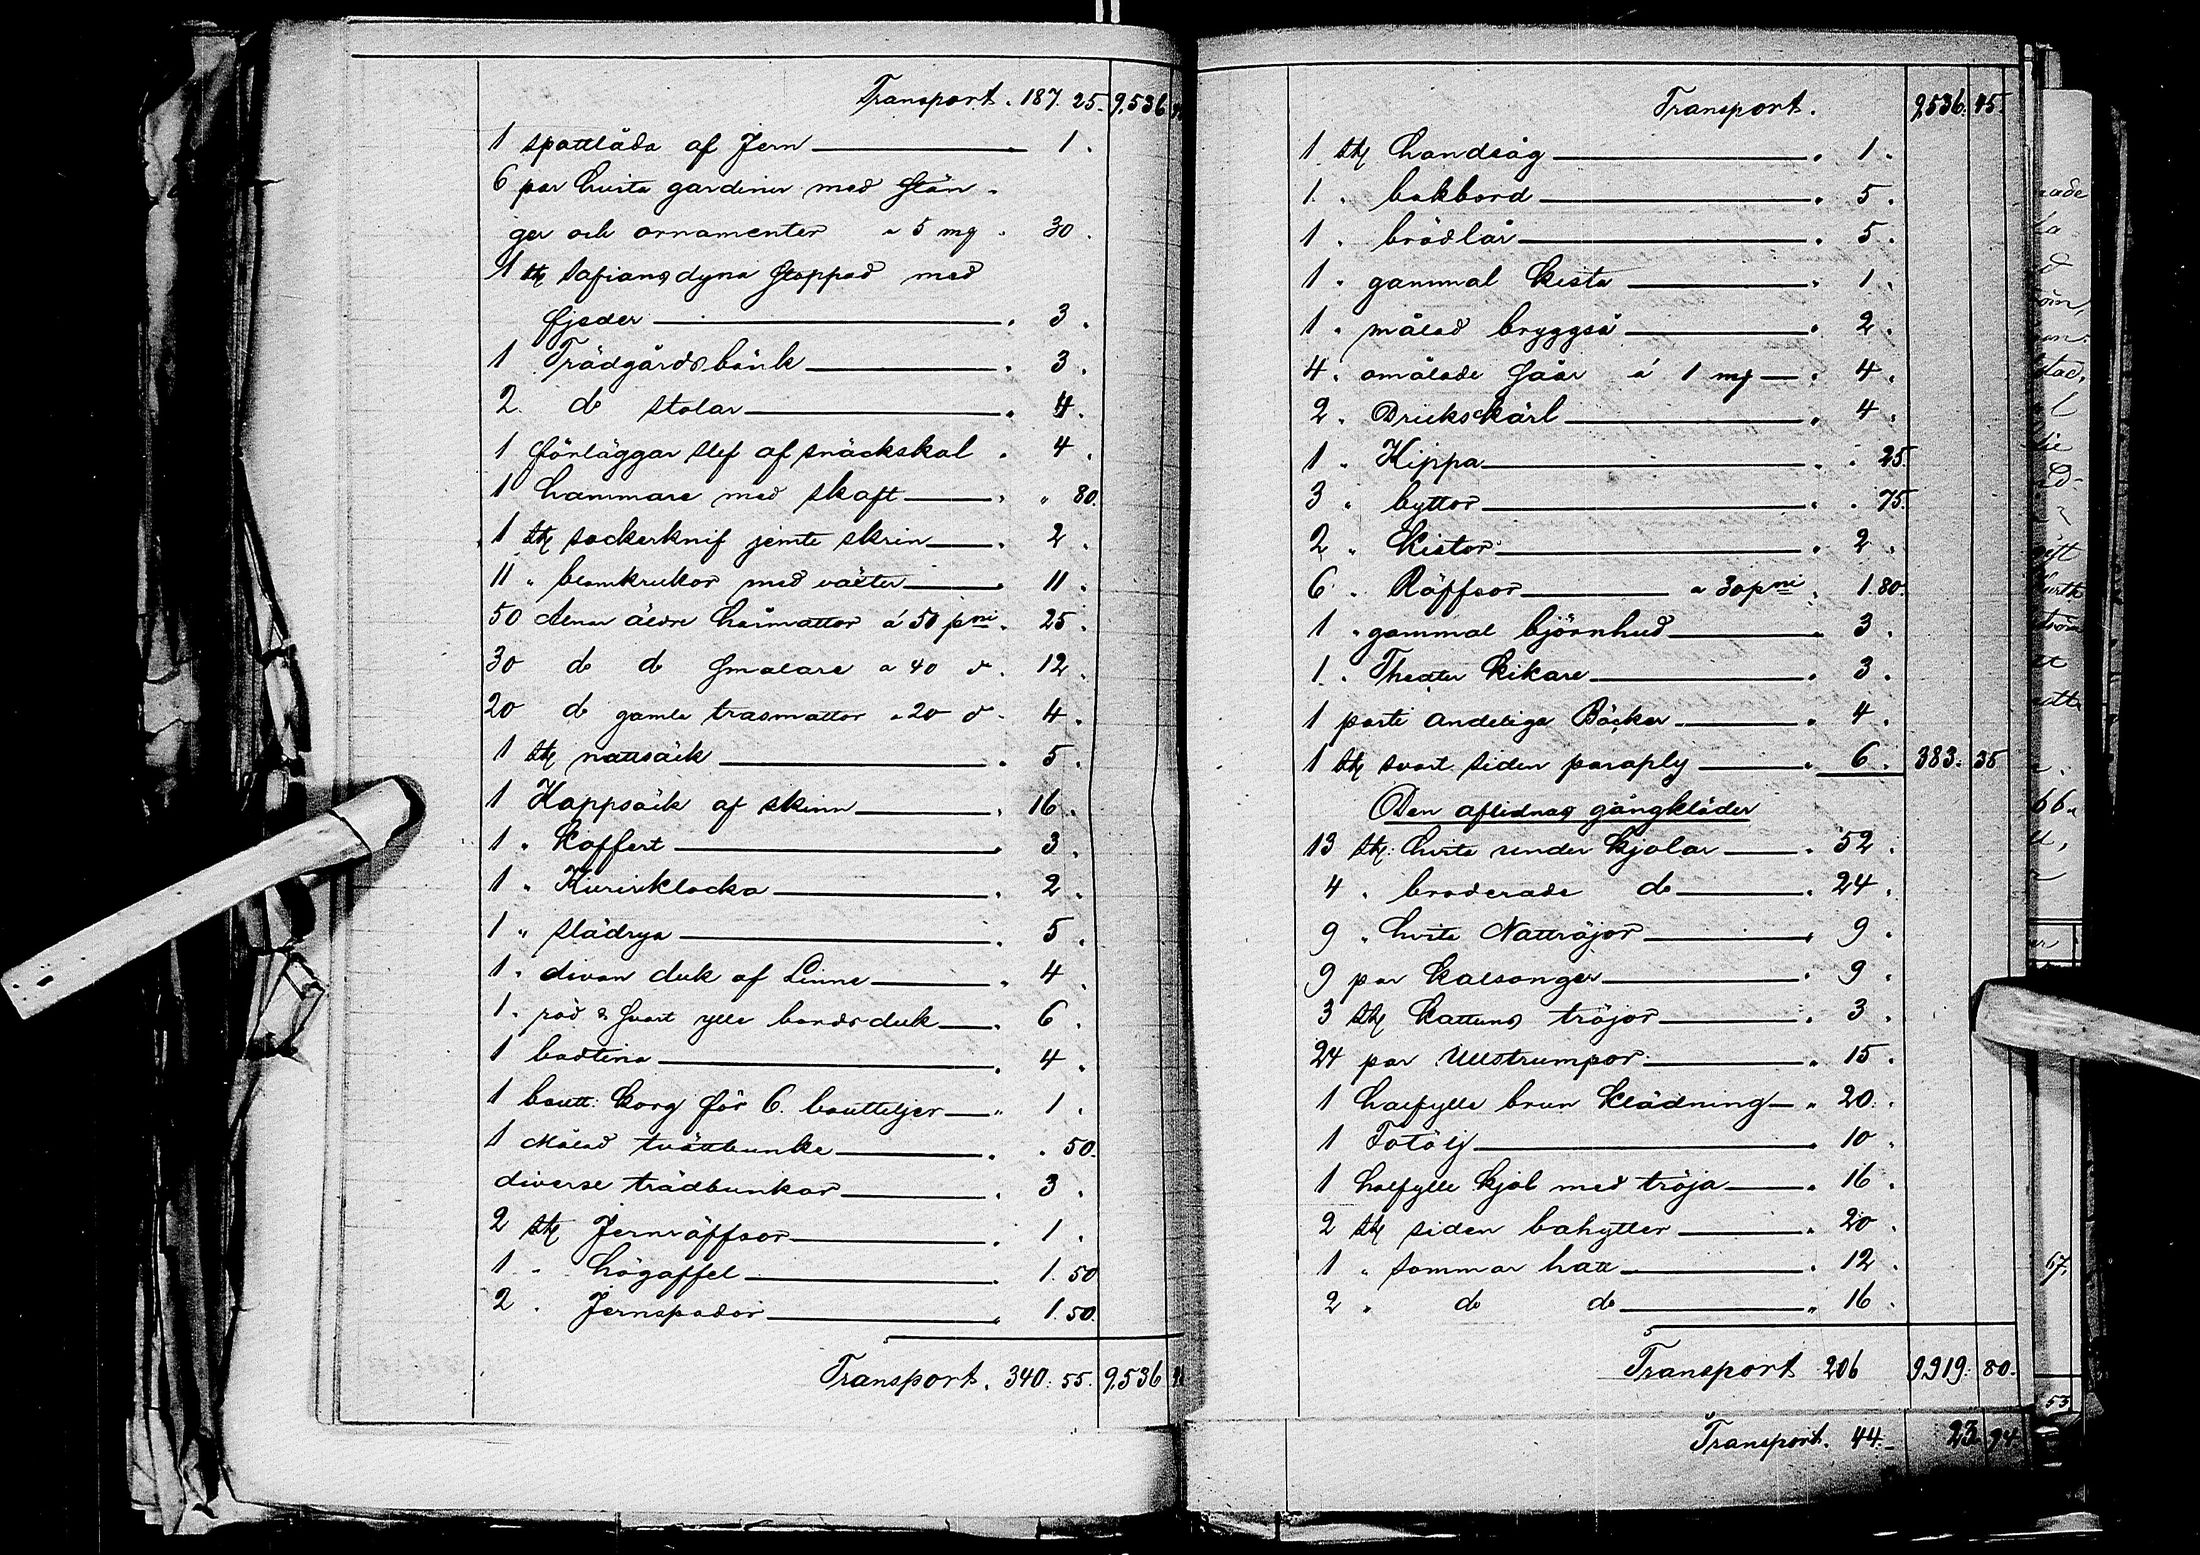 Transport. 187. 25. 9,536
1 spottlåda af Jern — 1.
6 par hvita gardiner med stän-
ger och ornamenter a 5 mg 30.
1 stk safiansdyna stoppad med
fjeder — 3.
1 Trädgårdsbänk — 3.
2 do stolar — 4.
1 förläggar slef af snäckskal 4.
1 hammare med skaft — " 80.
1 stk sockerknif jemte skrin — 2.
11 " blomkrukor med växter — 11.
50 Alnar äldre hårmattor á 50 pni. 25.
30 do do smalare a 40 d. 12.
20 do gamla trasmattor a 20 d. 4.
1 stk nattsäck — 5.
1 Kappsäck af skinn — 16.
1 " Koffert — 3.
1 " Kurirklocka — 2.
1 " slädrya — 5.
1 " divan duk af Linne — 4
1 " röd & svart ylle bordsduk — 6.
1 badtina — 4.
1 boutt: korg för 6. boutteljer — 1.
1 Målad tvättbunke — . 50.
diverse trädbunkar — 3.
2 stk Jernräffsor — 1.
1 - högaffel — 1. 50
2 . Jernspador — 1. 50.
Transport. 340. 55. 9,536
Transport. 9536. 45.
1 stk handsåg — 1.
1. " bakbord — 5.
1 " brödlår — 5.
1 " gammal kista — 1.
1 " målad bryggså — 2.
4. omålade såar á 1 mg — 4.
2. Drickskärl — 4.
1 " Kippa — . 25.
3 " byttor — . 75.
2 " Kistor — 2.
6 . Räffsor — a 30 pni. 1. 80.
1 " gammal björnhud — 3.
1. " Theater kikare — 3.
1 parti andeliga Böcker — 4.
1 stk svart siden paraply — 6. 383. 35
Den aflidnas gångkläder
13 stk: hvita under kjolar — 52.
4 . broderade do — 24.
9 " hvita Nattröjor — 9.
9 par kalsonger — 9.
3 stk kattuns tröjor — 3.
24 par Ullstrumpor — 15.
1 halfylle brun klädning — 20.
1 — 10.
1 halfylle kjol med tröja — 16.
2 stk siden bahytter — 20.
1 " sommar hatt — 12.
2 " do do — 16.
Transport 206 9919. 80.
Transport. 44.- 23 94